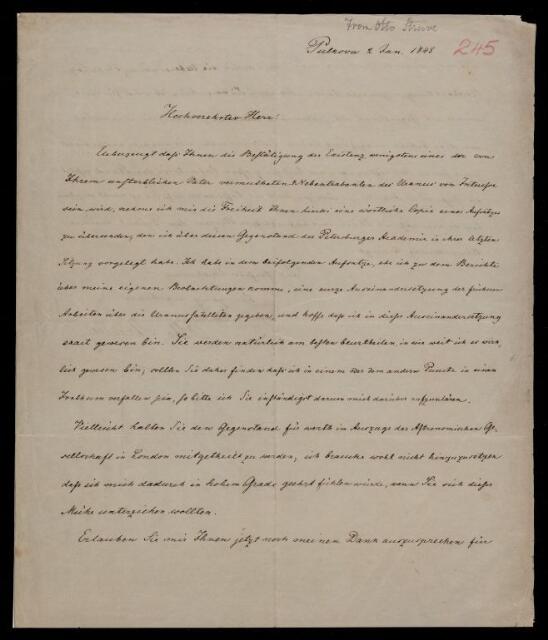 From Otto Struve
Pulkova 2 Jan. 1848
245
Hochverehrter Herr!
Ueberzeugt daß Ihnen die Bestätigung der Existenz wenigstens eines der von
Ihrem unsterblichen Vater vermutheten Nebentrabanten des Uranus von Interesse
sein wird, nehme ich mir die Freiheit Ihnen hierbei eine wörtliche Copie eines Aufsatzes
zu übersenden, den ich über diesen Gegenstand der Petersburger Academie in ihrer letzten
Sitzung vorgelegt habe. Ich habe in dem beifolgenden Aufsatze, ehe ich zu dem Berichte
über meine eigenen Beobachtungen komme, eine kurze Auseinandersetzung der frühern
Arbeiten über die Uranussatelliten gegeben, und hoffe daß ich in dieser Auseinandersetzung
exact gewesen bin. Sie werden natürlich am besten beurtheilen, in wie weit ich es wirk-
lich gewesen bin; sollten Sie daher finden daß ich in einem oder dem andern Puncte in einen
Irrthum verfallen sei, so bitte ich Sie inständigst darum mich darüber aufzuklären.
Vielleicht halten Sie den Gegenstand für werth im Auszuge der Astronomischen Ge-
sellschaft in London mitgetheilt zu werden; ich brauche wohl nicht hinzuzusetzen
daß ich mich dadurch in hohem Grade geehrt fühlen würde, wenn Sie sich dieser
Mühe unterziehen wollten.
Erlauben Sie mir Ihnen jetzt noch meinen Dank auszusprechen für